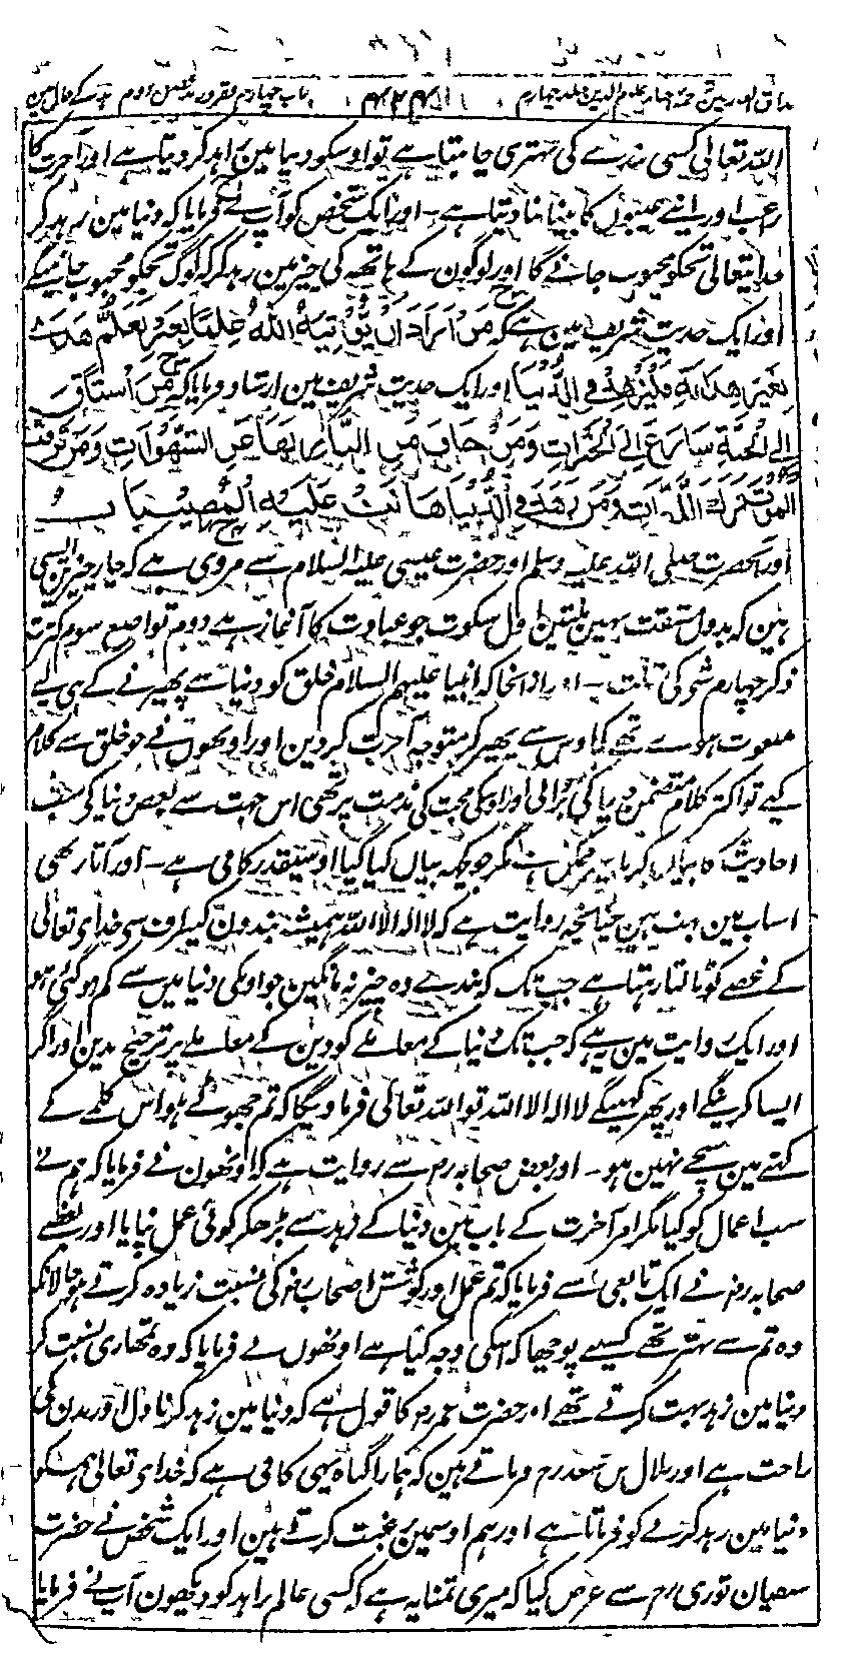 مذاق العارفین ترجمہ احیاء علوم الدین جلد چہارم ۴۲۴ باب چہارم فقر و زہد فصل دوم زہد کے حال مین
اللہ تعالی کسی بندے کی بہتری چاہتا ہے تو اوسکو دنیا مین زاہد کر دیتا ہے اور آخرت کا
راغب اور اپنے عیبون کا بینا بنا دیتا ہے۔ اور ایک شخص کو آپ نے فرمایا کہ دنیا مین زہد کر
خدایتعالی تجکو محبوب جانے گا اور لوگون کے ہاتھہ کی چیز مین زہد کر کہ لوگ تجکو محبوب جانینگے
اور ایک حدیث شریف مین ہے کہ مَنْ اَرَادَ اَنْ يُّؤْتِيَهُ اللّٰهُ عِلْمًا بِغَيْرِ تَعَلُّمٍ وَهُدًى
بِغَيْرِ هِدَايَةٍ فَلْيَزْهَدْ فِي الدُّنْيَا اور ایک حدیث شریف مین ارشاد فرمایا کہ مَنِ اشْتَاقَ
اِلَى الْجَنَّةِ سَارَعَ اِلَى الْخَيْرَاتِ وَمَنْ خَافَ مِنَ النَّارِ لَهَا عَنِ الشَّهَوَاتِ وَمَنْ تَرَقَّبَ
الْمَوْتَ تَرَكَ اللَّذَّاتِ وَمَنْ زَهَدَ فِي الدُّنْيَا هَانَتْ عَلَيْهِ الْمُصِيْبَاتُ
اور آنحضرت صلی اللہ علیہ وسلم اور حضرت عیسی علیہ السلام سے مروی ہے کہ چار چیزین ایسی
ہین کہ بدون مشقت نہین ملتین اول سکوت جو عبادت کا آغاز ہے دوم تواضع سوم کثرت
ذکر چہارم شی کی قلت۔ اور ازانجا کہ انبیا علیہم السلام خلق کو دنیا سے پھیرنے کے ہی لیے
مبعوث ہوے تھے کہ اوس سے پھیر کر متوجہ آخرت کر دین اور اونھون نے جو خلق سے کلام
کیے تو اکثر کلام متضمن دنیا کی برائی اور اوسکی محبت کی مذمت پر تھی اس جہت سے بعض دنیا کی سب
احادیث کا بیان کرنا غیر ممکن ہے مگر جو کچہ بیان کیا گیا اوسیقدر کافی ہے۔ اور آثار بھی
اس باب مین بہت ہین چنانچہ روایت ہے کہ لا الہ الا اللہ ہمیشہ بندون کیطرف سی خدای تعالی
کے غصے کو ٹالتا رہتا ہے جب تک کہ بندے وہ چیز نہ مانگین جو اونکی دنیا مین سے کم ہو گئی ہو
اور ایک روایت مین یہ ہے کہ جب تک دنیا کے معاملے کو دین کے معاملے پر ترجیح ندین اور اگر
ایسا کرینگے اور پھر کہینگے لا الہ الا اللہ تو اللہ تعالی فرماویگا کہ تم جھوٹے ہو اس کلمے کے
کہنے مین سچے نہین ہو۔ اور بعض صحابہ رض سے روایت ہے کہ اونھون نے فرمایا کہ ہم نے
سب اعمال کو کیا مگر امر آخرت کے باب مین دنیا کے زہد سے بڑھکر کوئی عمل نپایا اور بعضے
صحابہ رض نے ایک تابعی سے فرمایا کہ تم عمل اور کوشش اصحاب رض کی بنسبت زیادہ کرتے ہو حالانکہ
وہ تم سے بہتر تھے کسی نے پوچھا کہ اسکی وجہ کیا ہے اونھون نے فرمایا کہ وہ تمھاری بنسبت کر
دنیا مین زہد بہت کرتے تھے اور حضرت عمر رض کا قول ہے کہ دنیا مین زہد کرنا دل اور بدن کی
راحت ہے اور بلال بن سعد رح فرماتے ہین کہ ہمارا گناہ یہی کافی ہے کہ خدای تعالی ہمکو
دنیا مین زہد کرنے کو فرماتا ہے اور ہم اوسمین رغبت کرتے ہین اور ایک شخص نے حضرت
سفیان ثوری رح سے عرض کیا کہ میری تمنا یہ ہے کہ کسی عالم زاہد کو دیکھون آپ نے فرمایا